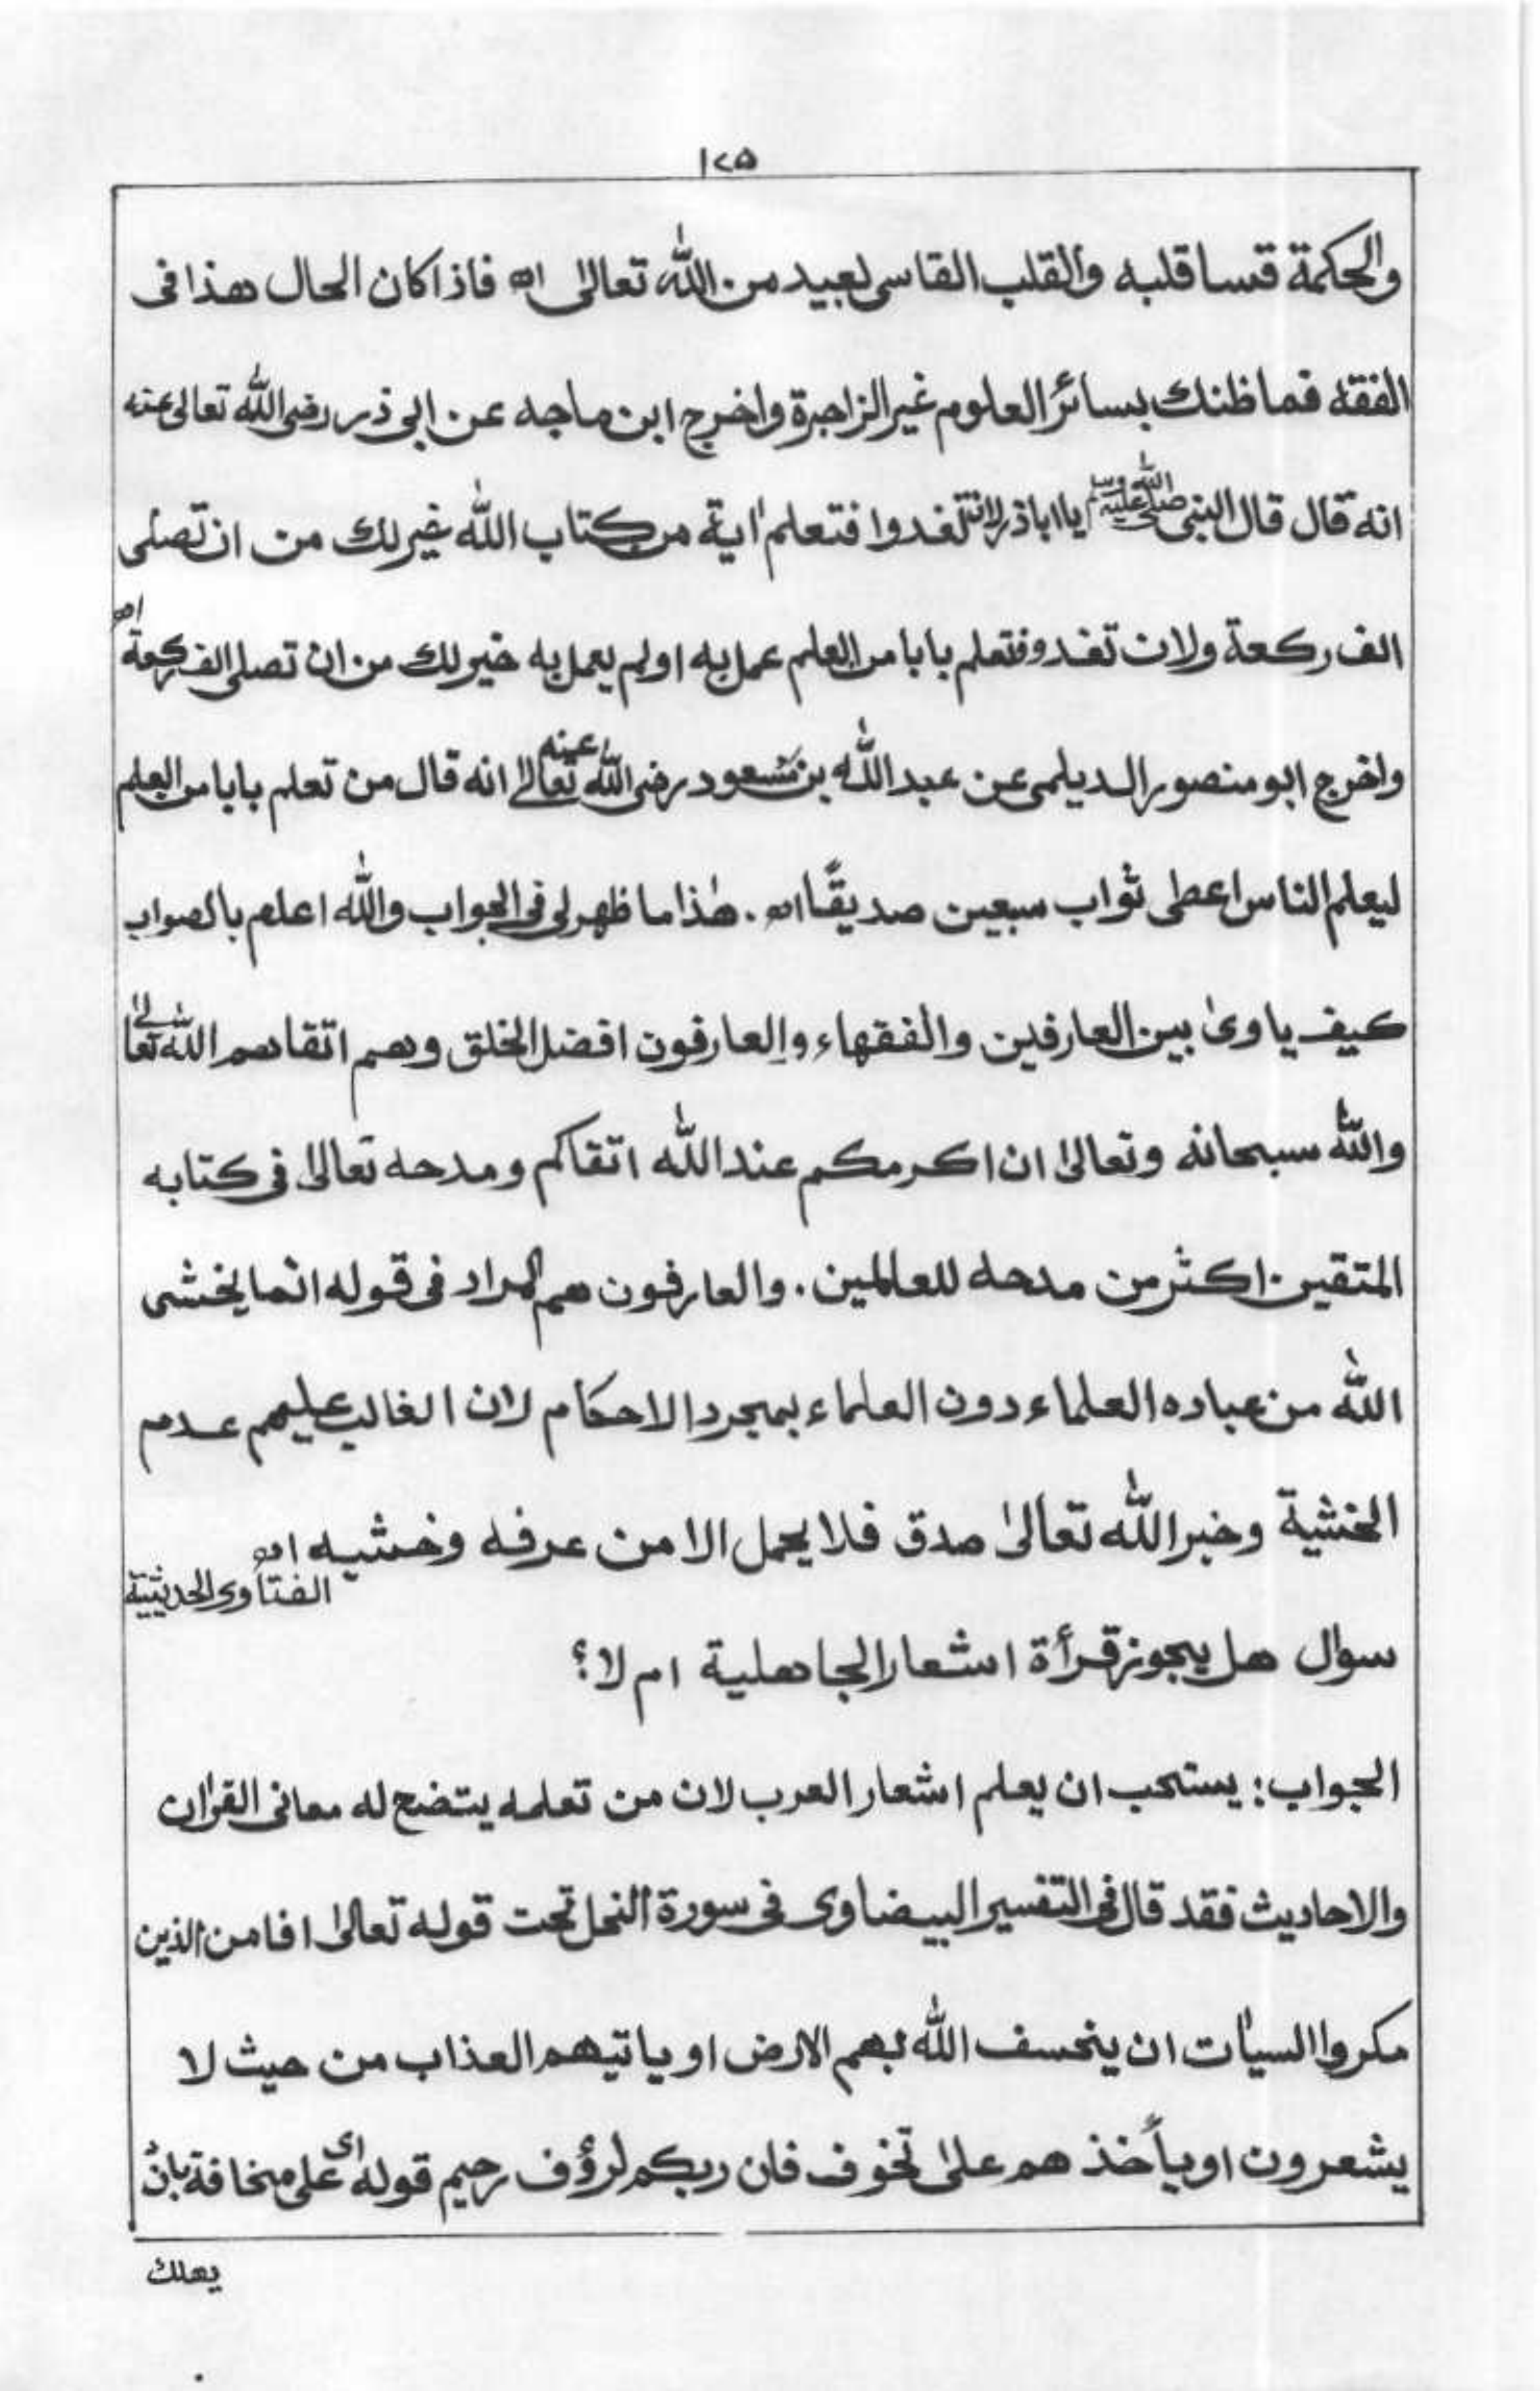 ١٢٥
والحكمة قسا قلبه والقلب القاسى بعيد من الله تعالىٰ اھ فاذا كان الحال هذا فى
الفقه فما ظنك بسائر العلوم غير الزاجرة واخرج ابن ماجه عن ابى ذر رضى الله تعالى عنه
انه قال قال النبى صلى الله عليه وسلم يا اباذر لان تغدوا فتعلم اٰية من كتاب الله خير لك من ان تصلى
الف ركعة ولان تغدو فتعلم بابا من العلم عمل به اولم يعمل به خير لك من ان تصلى الف ركعة اھ
واخرج ابو منصور الديلمى عن عبد الله بن مسعود رضى الله تعالىٰ عنه انه قال من تعلم بابا من العلم
ليعلم الناس اعطى ثواب سبعين صديقًا اھ. هٰذا ما ظهر لى فى الجواب والله اعلم بالصواب
كيف ياوىٰ بين العارفين والفقهاء والعارفون افضل الخلق وهم اتقاهم الله تعالىٰ
والله سبحانه وتعالىٰ ان اكرمكم عند الله اتقاكم ومدحه تعالىٰ فى كتابه
المتقين اكثر من مدحه للعالمين. والعارفون هم المراد فى قوله انما يخشى
الله من عباده العلماء دون العلماء بمجرد الاحكام لان الغالب عليهم عدم
الخشية وخبر الله تعالىٰ صدق فلا يحمل الا من عرفه وخشيه اھ
الفتاوى الحديثية
سوال هل يجوز قرأة اشعار الجاهلية ام لا؟
الجواب: يستحب ان يعلم اشعار العرب لان من تعلمه يتضح له معانى القراٰن
والاحاديث فقد قال فى التفسير البيضاوى فى سورة النحل تحت قوله تعالىٰ افامن الذين
مكروا السياٰت ان يخسف الله بهم الارض او ياتيهم العذاب من حيث لا
يشعرون او يأخذ هم علىٰ تخوف فان ربكم لرؤف رحيم قوله اى على مخافة بان
يهلك